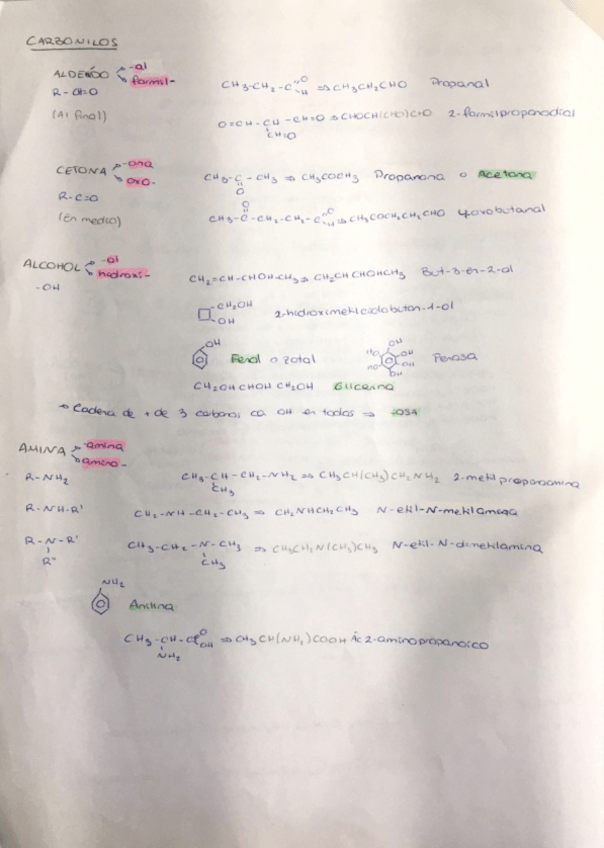 CARBONILOS
ALDEHÍDO -al
formil-
R-CH=O
(Al final)
CH3-CH2-C=O H ⇒ CH3CH2CHO Propanal
O=CH-CH-CH=O ⇒ CHOCH(CHO)CHO 2-formilpropanodial
CH=O
CETONA -ona
oxo-
R-C=O
(En medio)
CH3-C-CH3 ⇒ CH3COCH3 Propanona o Acetona
O
O
CH3-C-CH2-CH2-C=O H ⇒ CH3COCH2CH2CHO 4oxobutanal
ALCOHOL -ol
hidroxi-
-OH
CH2=CH-CHOH-CH3 ⇒ CH2CHCHOHCH3 But-3-en-2-ol
CH2OH
OH
2-hidroximetilciclobutan-1-ol
OH
Fenol o zotal
OH
HO OH
HO OH
OH
Fenosa
CH2OH CHOH CH2OH Glicerina
→ Cadena de + de 3 carbonos co OH en todos ⇒ -OSA
AMINA -amina
amino-
R-NH2
CH3-CH-CH2-NH2 ⇒ CH3CH(CH3)CH2NH2 2-metilpropanoamina
CH3
R-NH-R'
CH2-NH-CH2-CH3 ⇒ CH2NHCH2CH3 N-etil-N-metilamina
R-N-R'
R"
CH3-CH2-N-CH3 ⇒ CH3CH2N(CH3)CH3 N-etil-N-dimetilamina
CH3
NH2
Anilina
CH3-CH-C O OH ⇒ CH3CH(NH2)COOH Ác 2-aminopropanoico
NH2